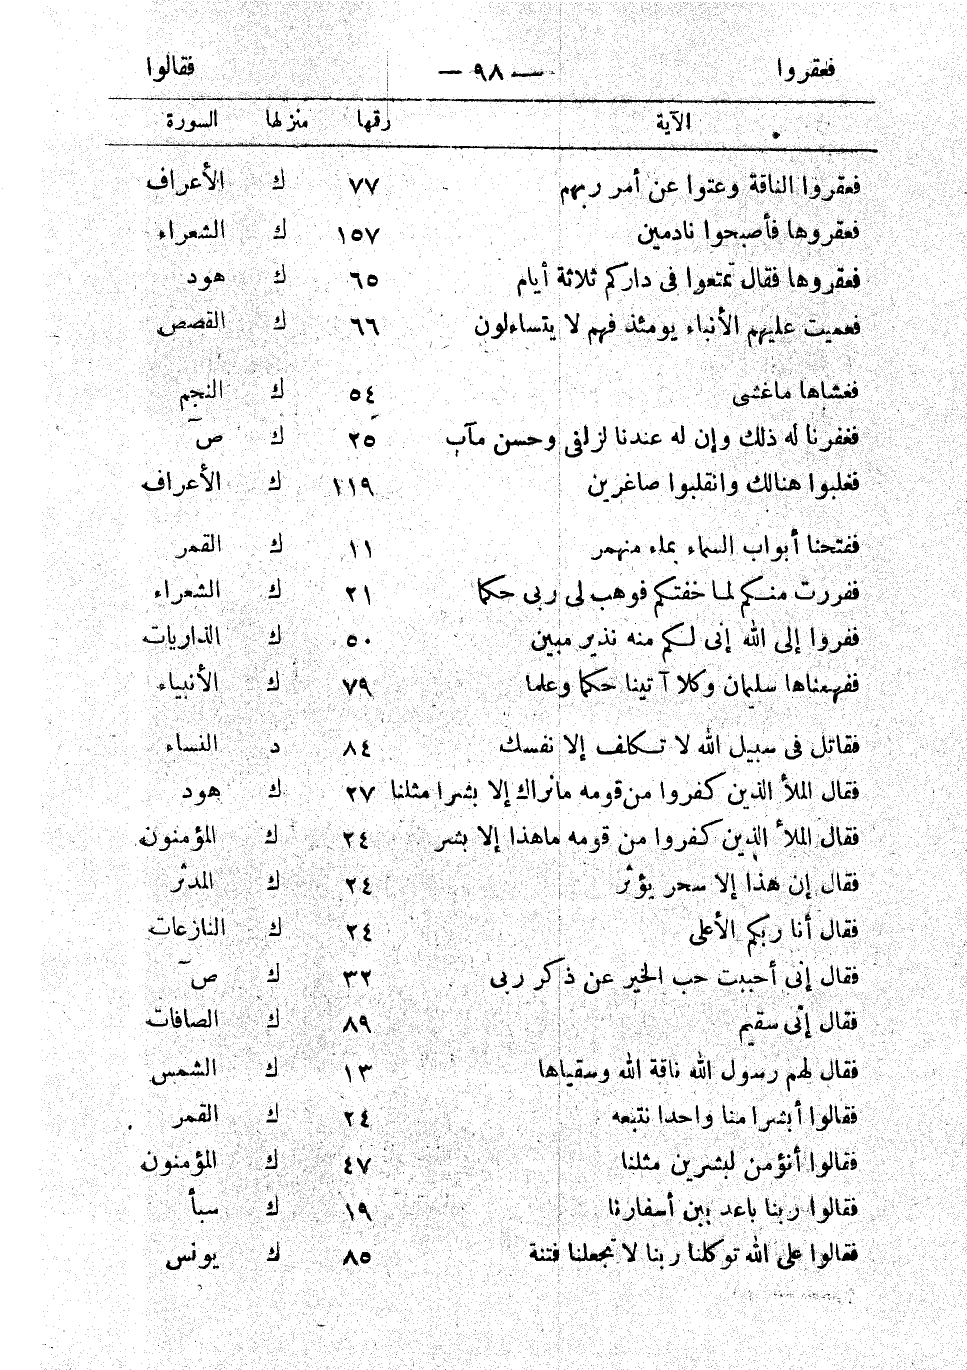 فعقروا — ٩٨ — فقالوا
الآية رقمها منزلها السورة
فعقروا الناقة وعتوا عن أمر ربهم ٧٧ ك الأعراف
فعقروها فأصبحوا نادمين ١٥٧ ك الشعراء
فعقروها فقال تمتعوا فى داركم ثلاثة أيام ٦٥ ك هود
فعميت عليهم الأنباء يومئذ فهم لا يتساءلون ٦٦ ك القصص
فغشاها ماغشى ٥٤ ك النجم
فغفرنا له ذلك وإن له عندنا لزلفى وحسن مآب ٢٥ ك صٓ
فغلبوا هنالك وانقلبوا صاغرين ١١٩ ك الأعراف
ففتحنا أبواب السماء بماء منهمر ١١ ك القمر
ففررت منكم لما خفتكم فوهب لى ربى حكما ٢١ ك الشعراء
ففروا إلى الله إنى لكم منه نذير مبين ٥٠ ك الذاريات
ففهمناها سليمان وكلا آتينا حكما وعلما ٧٩ ك الأنبياء
فقاتل فى سبيل الله لا تكلف إلا نفسك ٨٤ د النساء
فقال الملأ الذين كفروا من قومه مانراك إلا بشرا مثلنا ٢٧ ك هود
فقال الملأ الذين كفروا من قومه ماهذا إلا بشر ٢٤ ك المؤمنون
فقال إن هذا إلا سحر يؤثر ٢٤ ك المدثر
فقال أنا ربكم الأعلى ٢٤ ك النازعات
فقال إنى أحببت حب الخير عن ذكر ربى ٣٢ ك صٓ
فقال إنّى سقيم ٨٩ ك الصافات
فقال لهم رسول الله ناقة الله وسقياها ١٣ ك الشمس
فقالوا أبشرا منا واحدا نتبعه ٢٤ ك القمر
فقالوا أنؤمن لبشرين مثلنا ٤٧ ك المؤمنون
فقالوا ربنا باعد بين أسفارنا ١٩ ك سبأ
فقالوا على الله توكلنا ربنا لا تجعلنا فتنة ٨٥ ك يونس